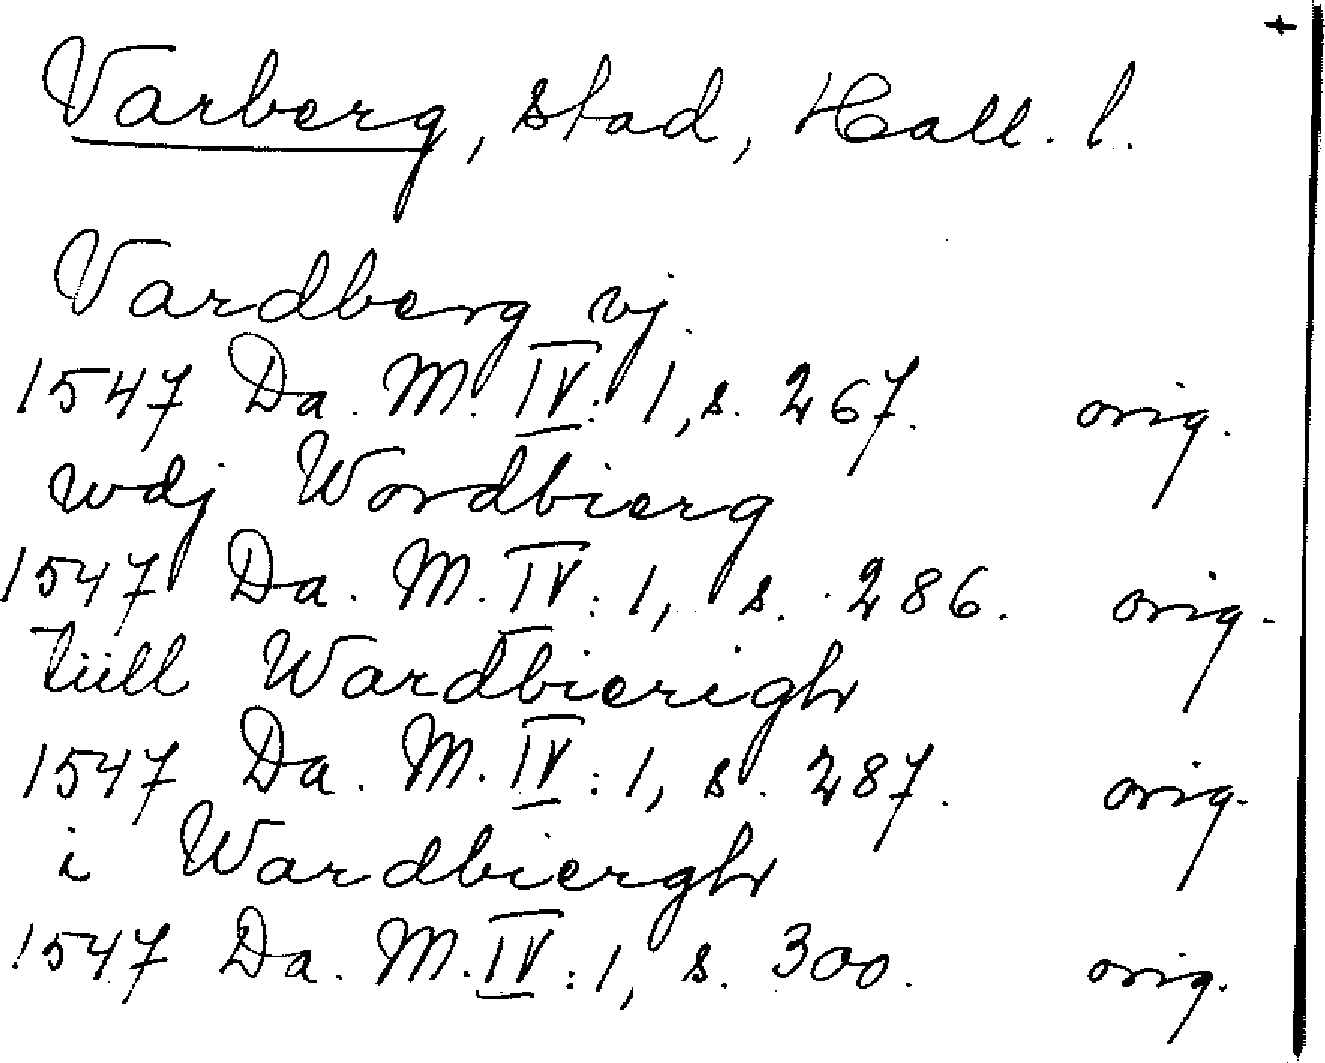 +
Varberg, stad, Hall. l.
Vardberg vj.
1547 Da. M. IV: 1, s. 267. orig.
wdj Wordbierg
1547 Da. M. IV: 1, s. 286. orig.
tiill Wardbierigh
1547 Da. M. IV: 1, s. 287. orig.
i Wardbiergh
1547 Da. M. IV: 1, s. 300. orig.